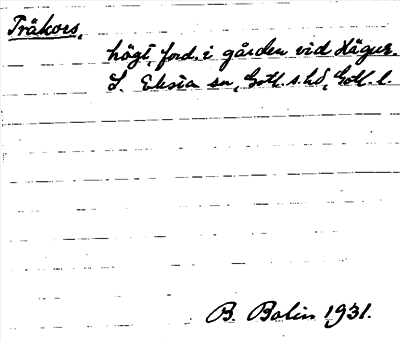 Träkors,
högt, ford. i gården vid Hägur.
L. Eksta sn, Gotl. s. hd, Gotl. l.
B. Bolin 1931.